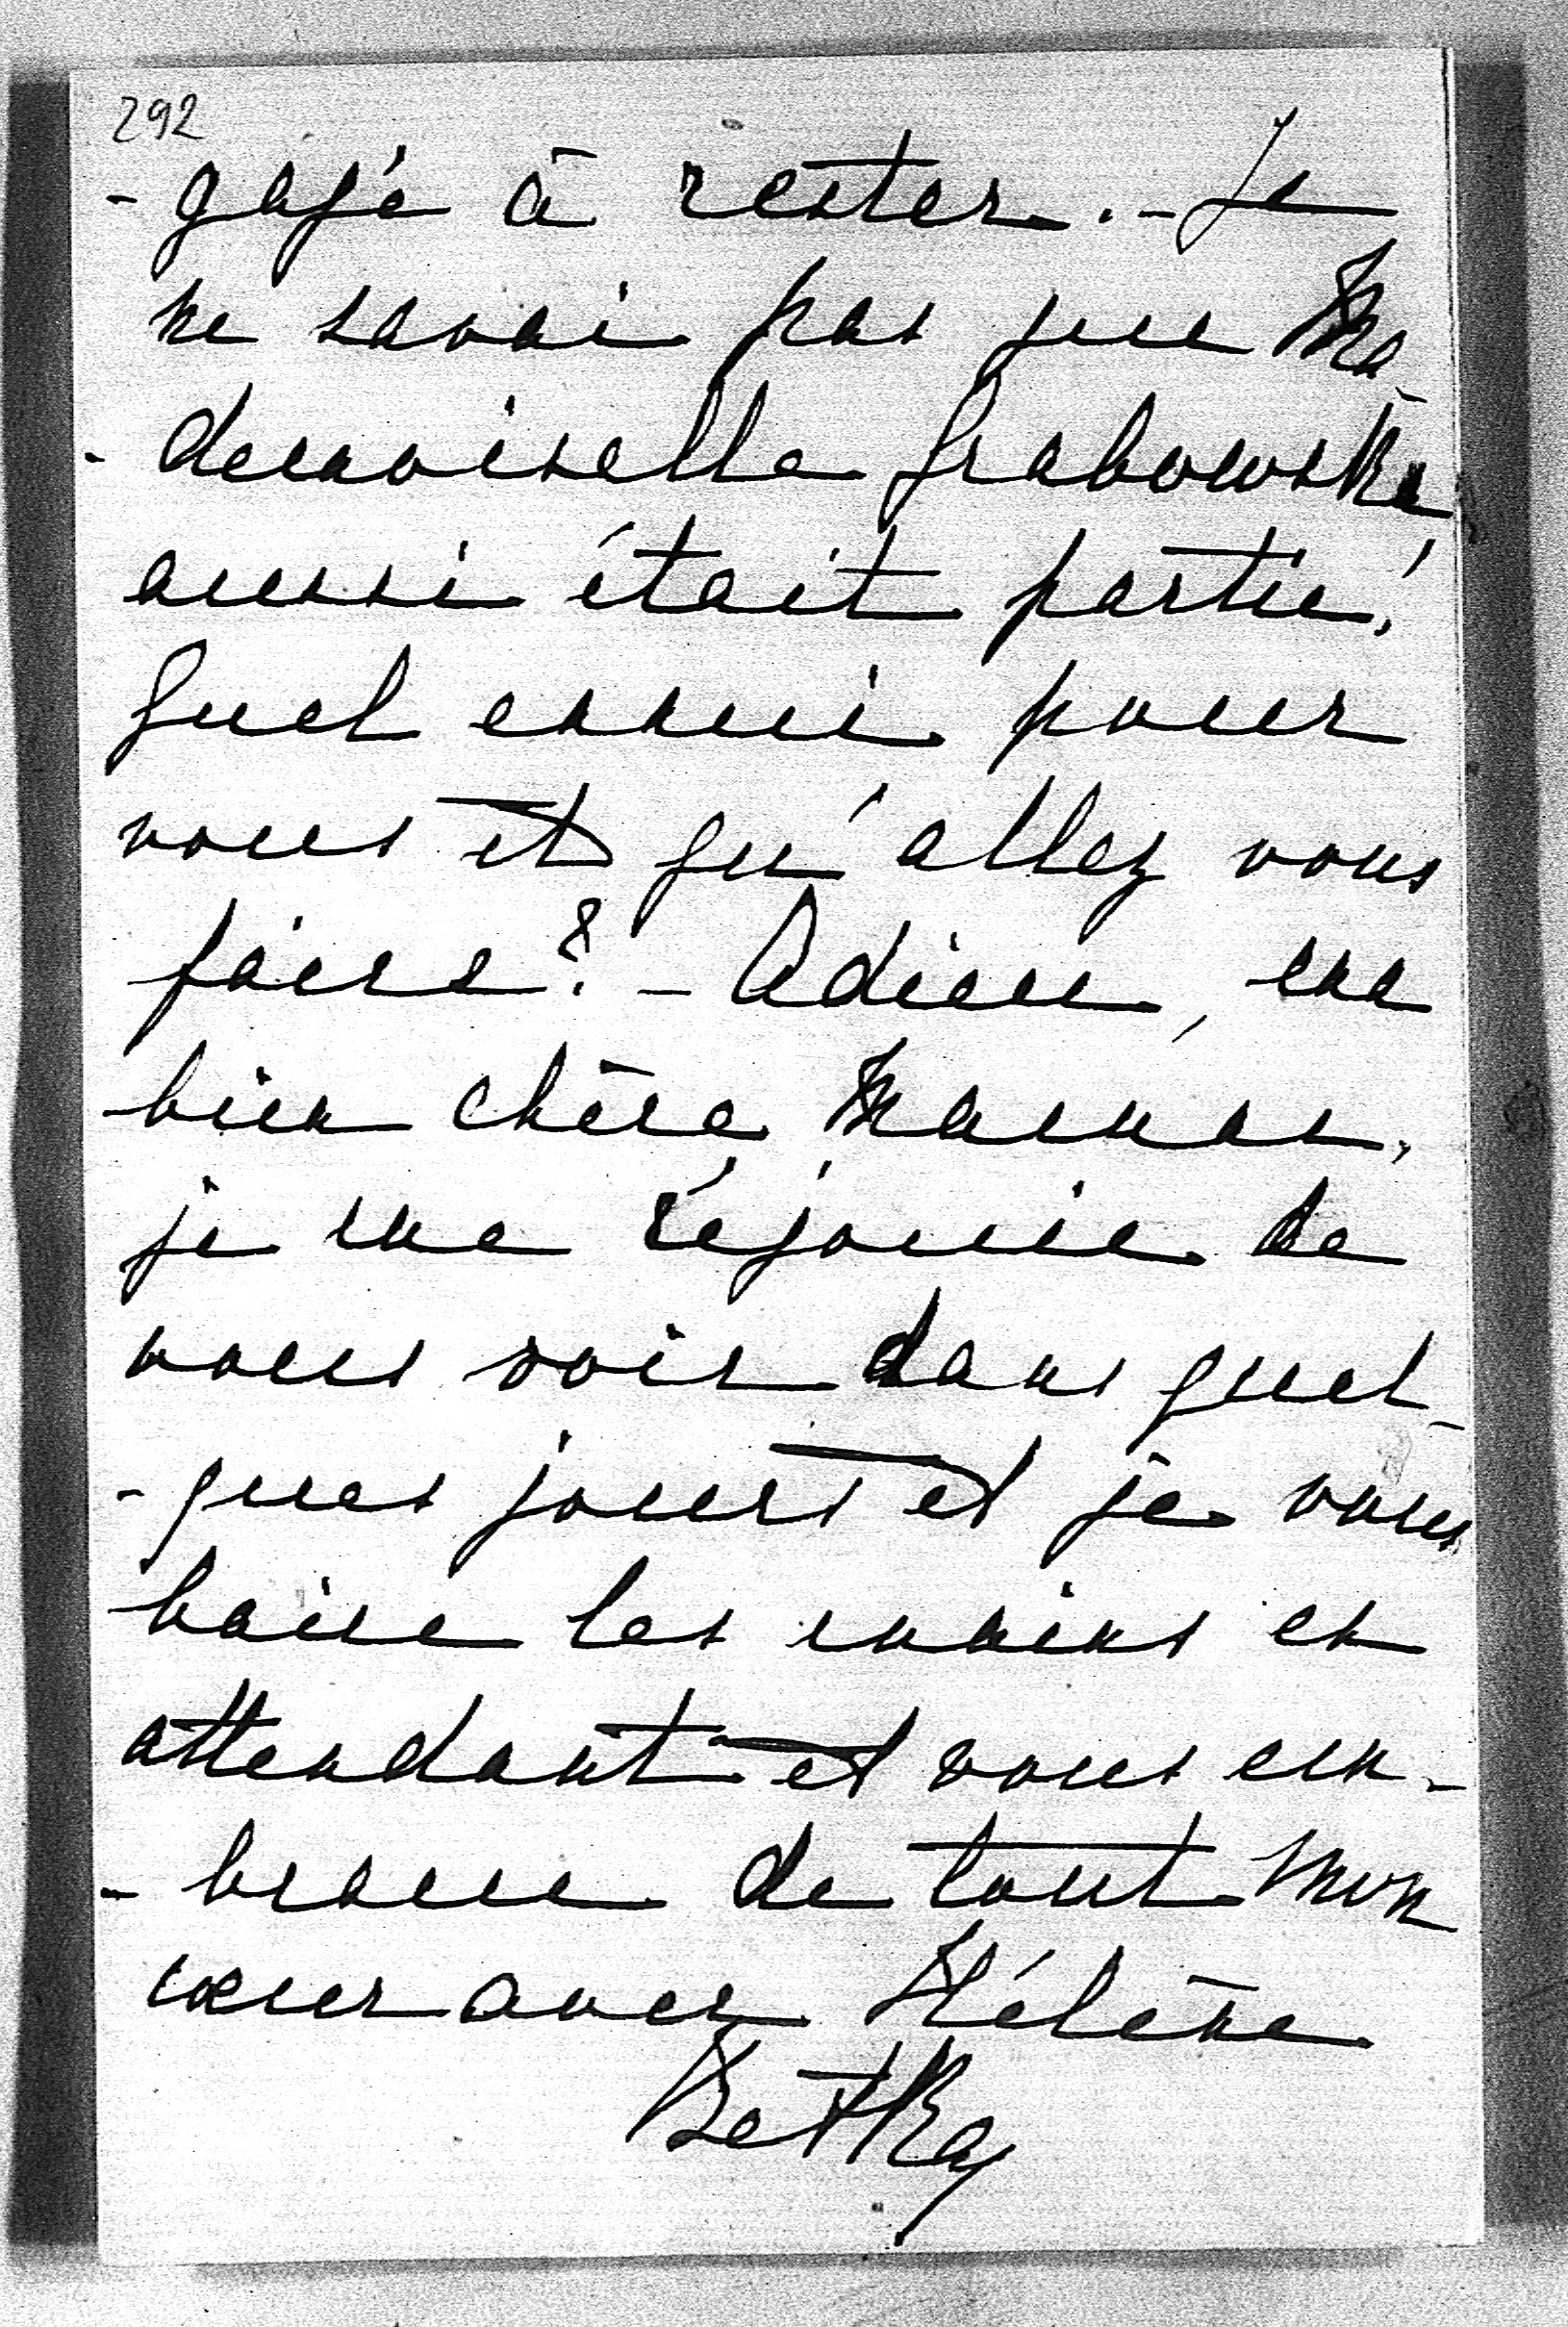 292
-gagé à rester. - Je
ne savai pas que Ma-
-demoiselle Grabowska
aussi était partie!
Quel ennui pour
vous et qu'allez vous
faire? - Adieu, ma
bien chère Maman,
je me réjouie de
vous voir dans quel-
-ques jours et je vous
baise les mains en
attendant et vous em-
-brasse de tout mon
cœur avec Hélène
Betka